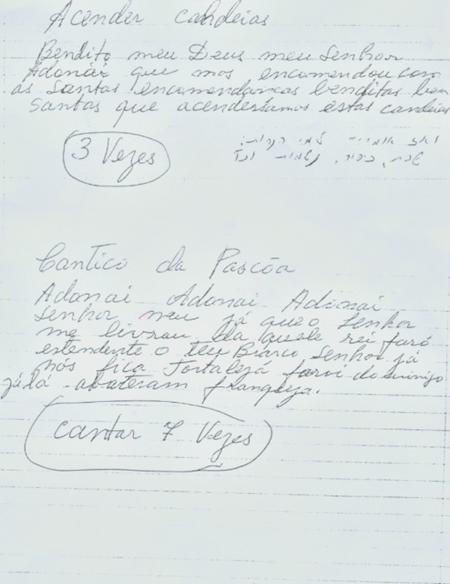 Acender candeias
Bendito meu Deus meu Senhor
Adonai que nos encomendou com
as Santas encomendanças benditas bem
Santas que acendessamos estas candeias
3 Vezes
Cantico da Pascôa
Adonai Adonai Adonai
Senhor meu já que o Senhor
me livrou rei faró
estendente o teu Braco, Senhor já
nós fica fortaleza
já lá abateram franqueza.
cantar 7 Vezes